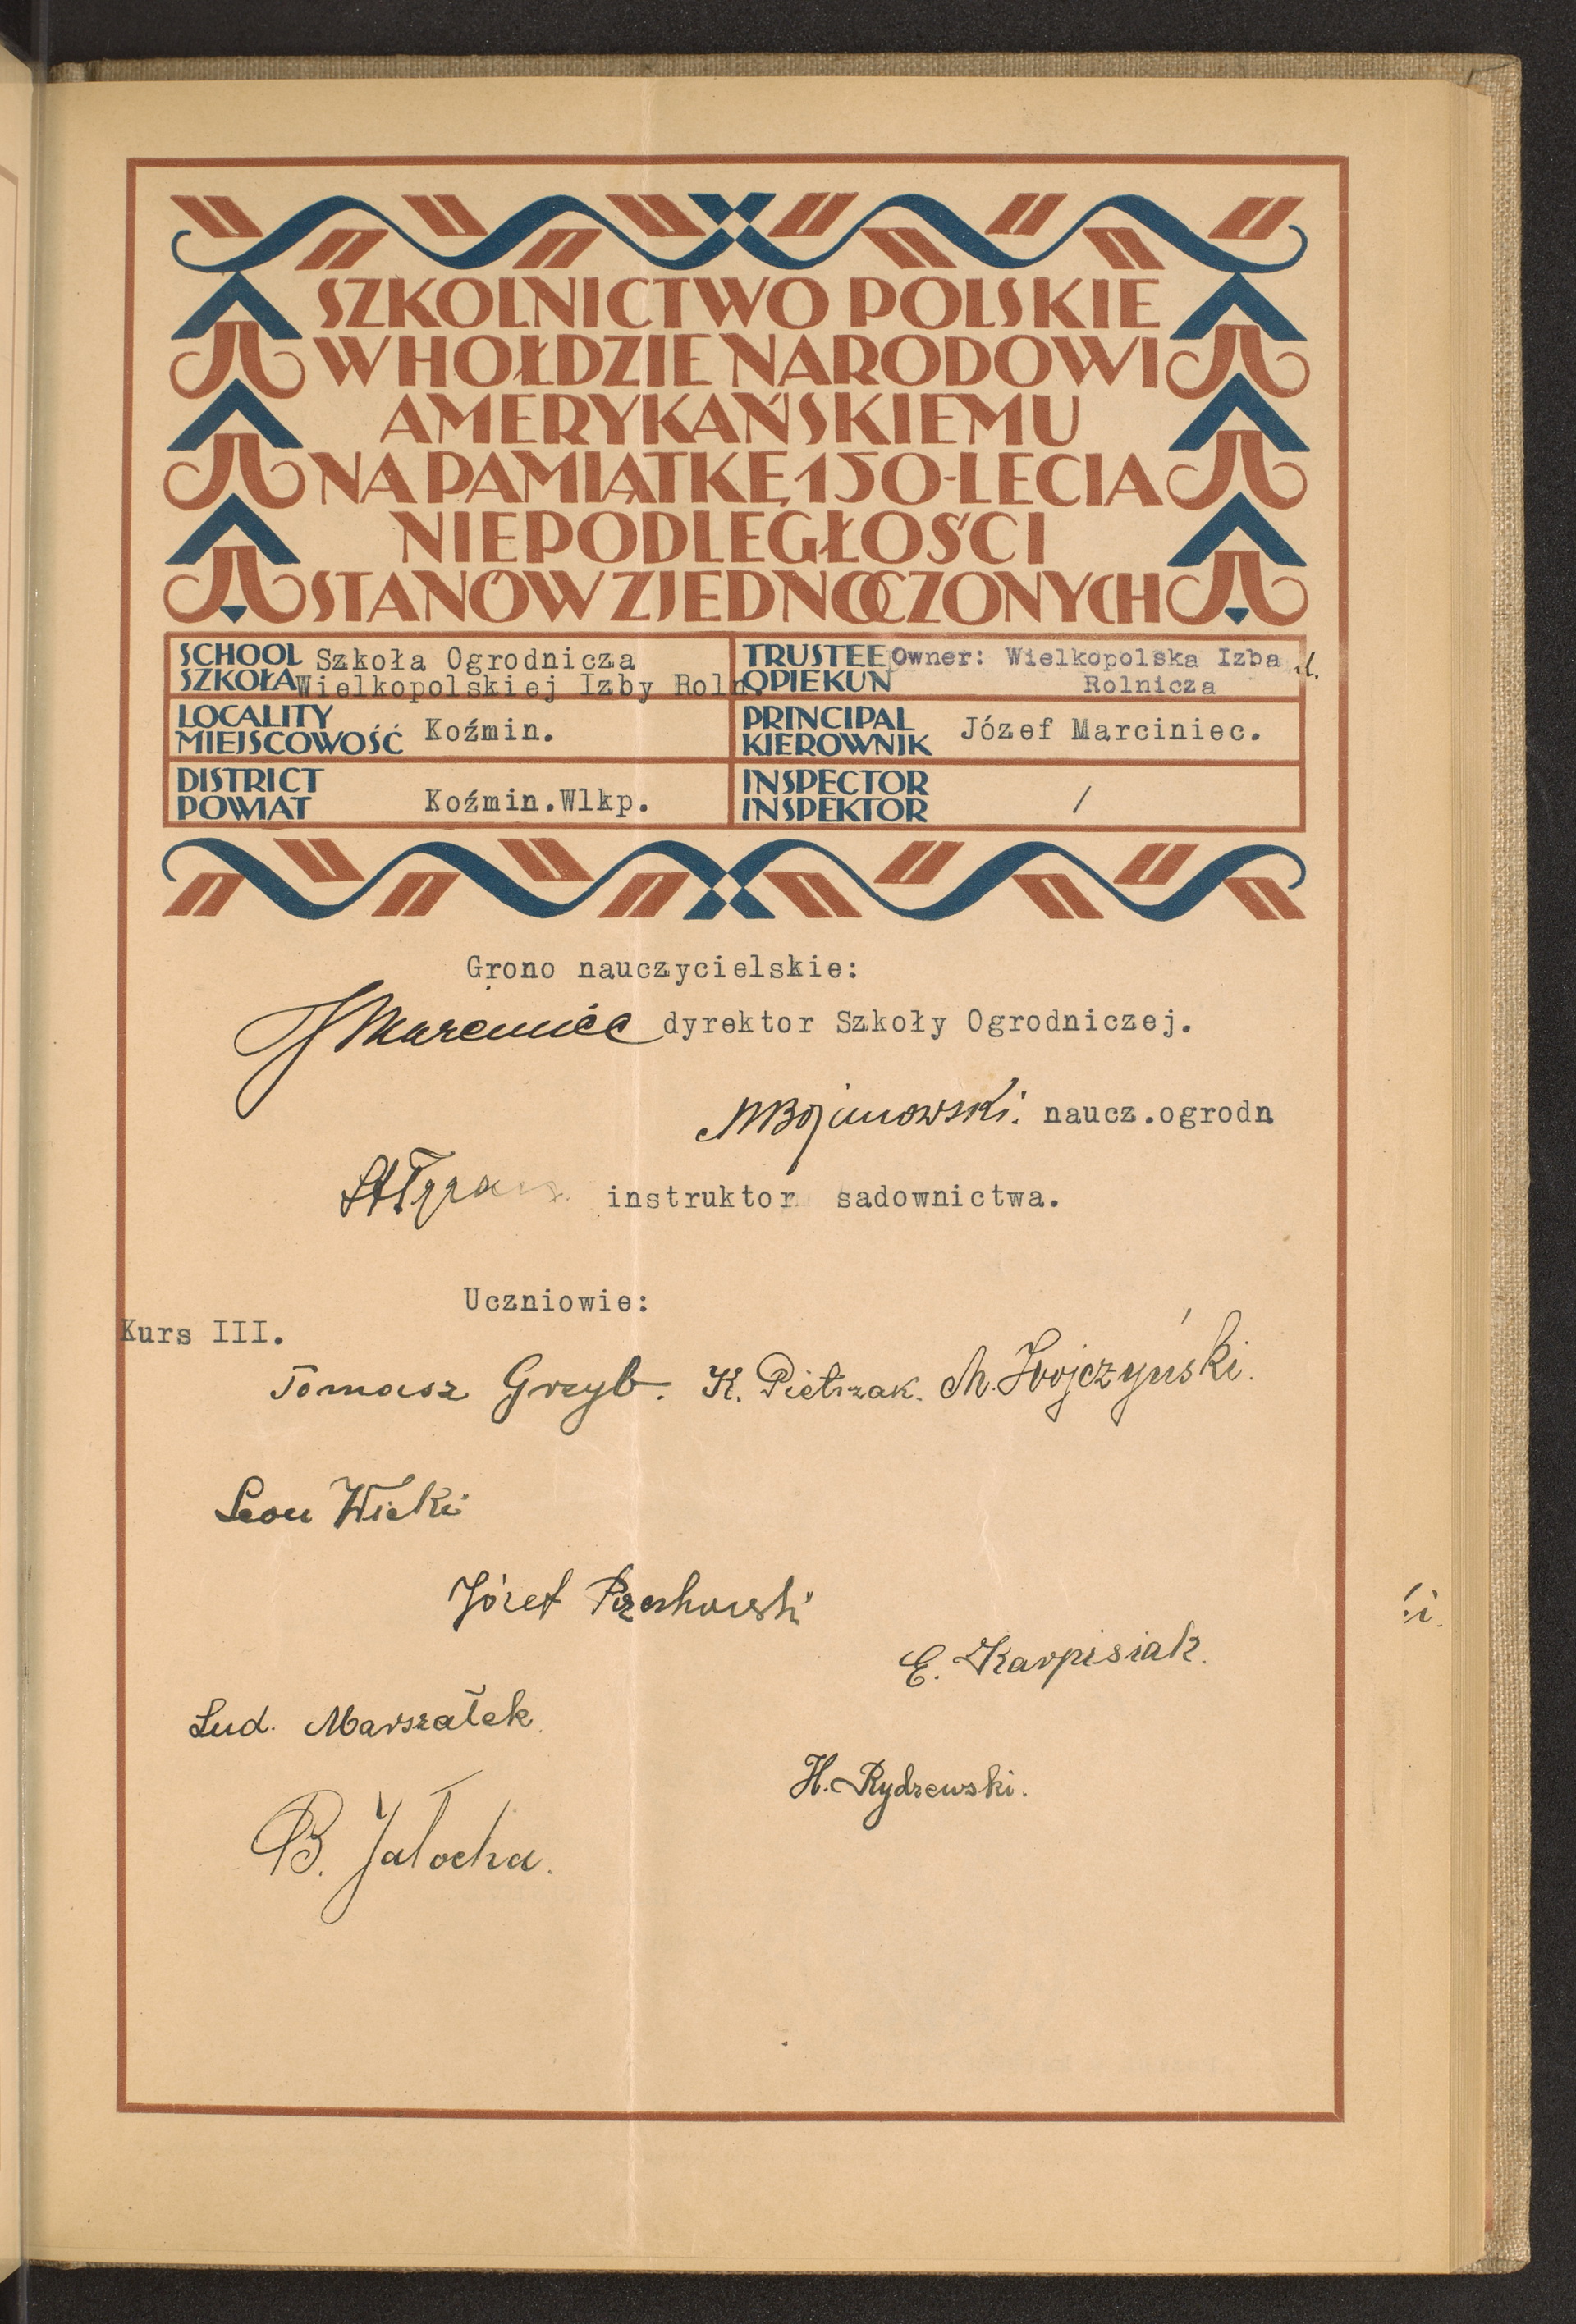 SZKOLNICTWO POLSKIE
W HOŁDZIE NARODOWI
AMERYKAŃSKIEMU
NA PAMIĄTKĘ 150-LECIA
NIEPODLEGŁOŚCI
STANÓW ZJEDNOCZONYCH
SCHOOL Szkoła Ogrodnicza
SZKOŁA Wielkopolskiej Izby Roln.
TRUSTEE Owner: Wielkopolska Izba
OPIEKUN Rolnicza
LOCALITY
MIEJSCOWOŚĆ Koźmin.
PRINCIPAL
KIEROWNIK Józef Marciniec.
DISTRICT
POWIAT Koźmin.Wlkp.
INSPECTOR
INSPEKTOR /
Grono nauczycielskie:
J Marciniec dyrektor Szkoły Ogrodniczej.
naucz.ogrodn
instruktor sadownictwa.
Uczniowie:
Kurs III.
Tomasz Grzyb. K. Pietrzak. M. Wojczyński.
Leon Wicki
Józef
E. Karpisiak.
Lud. Marszałek
H. Rydzewski.
B. Jałocha.